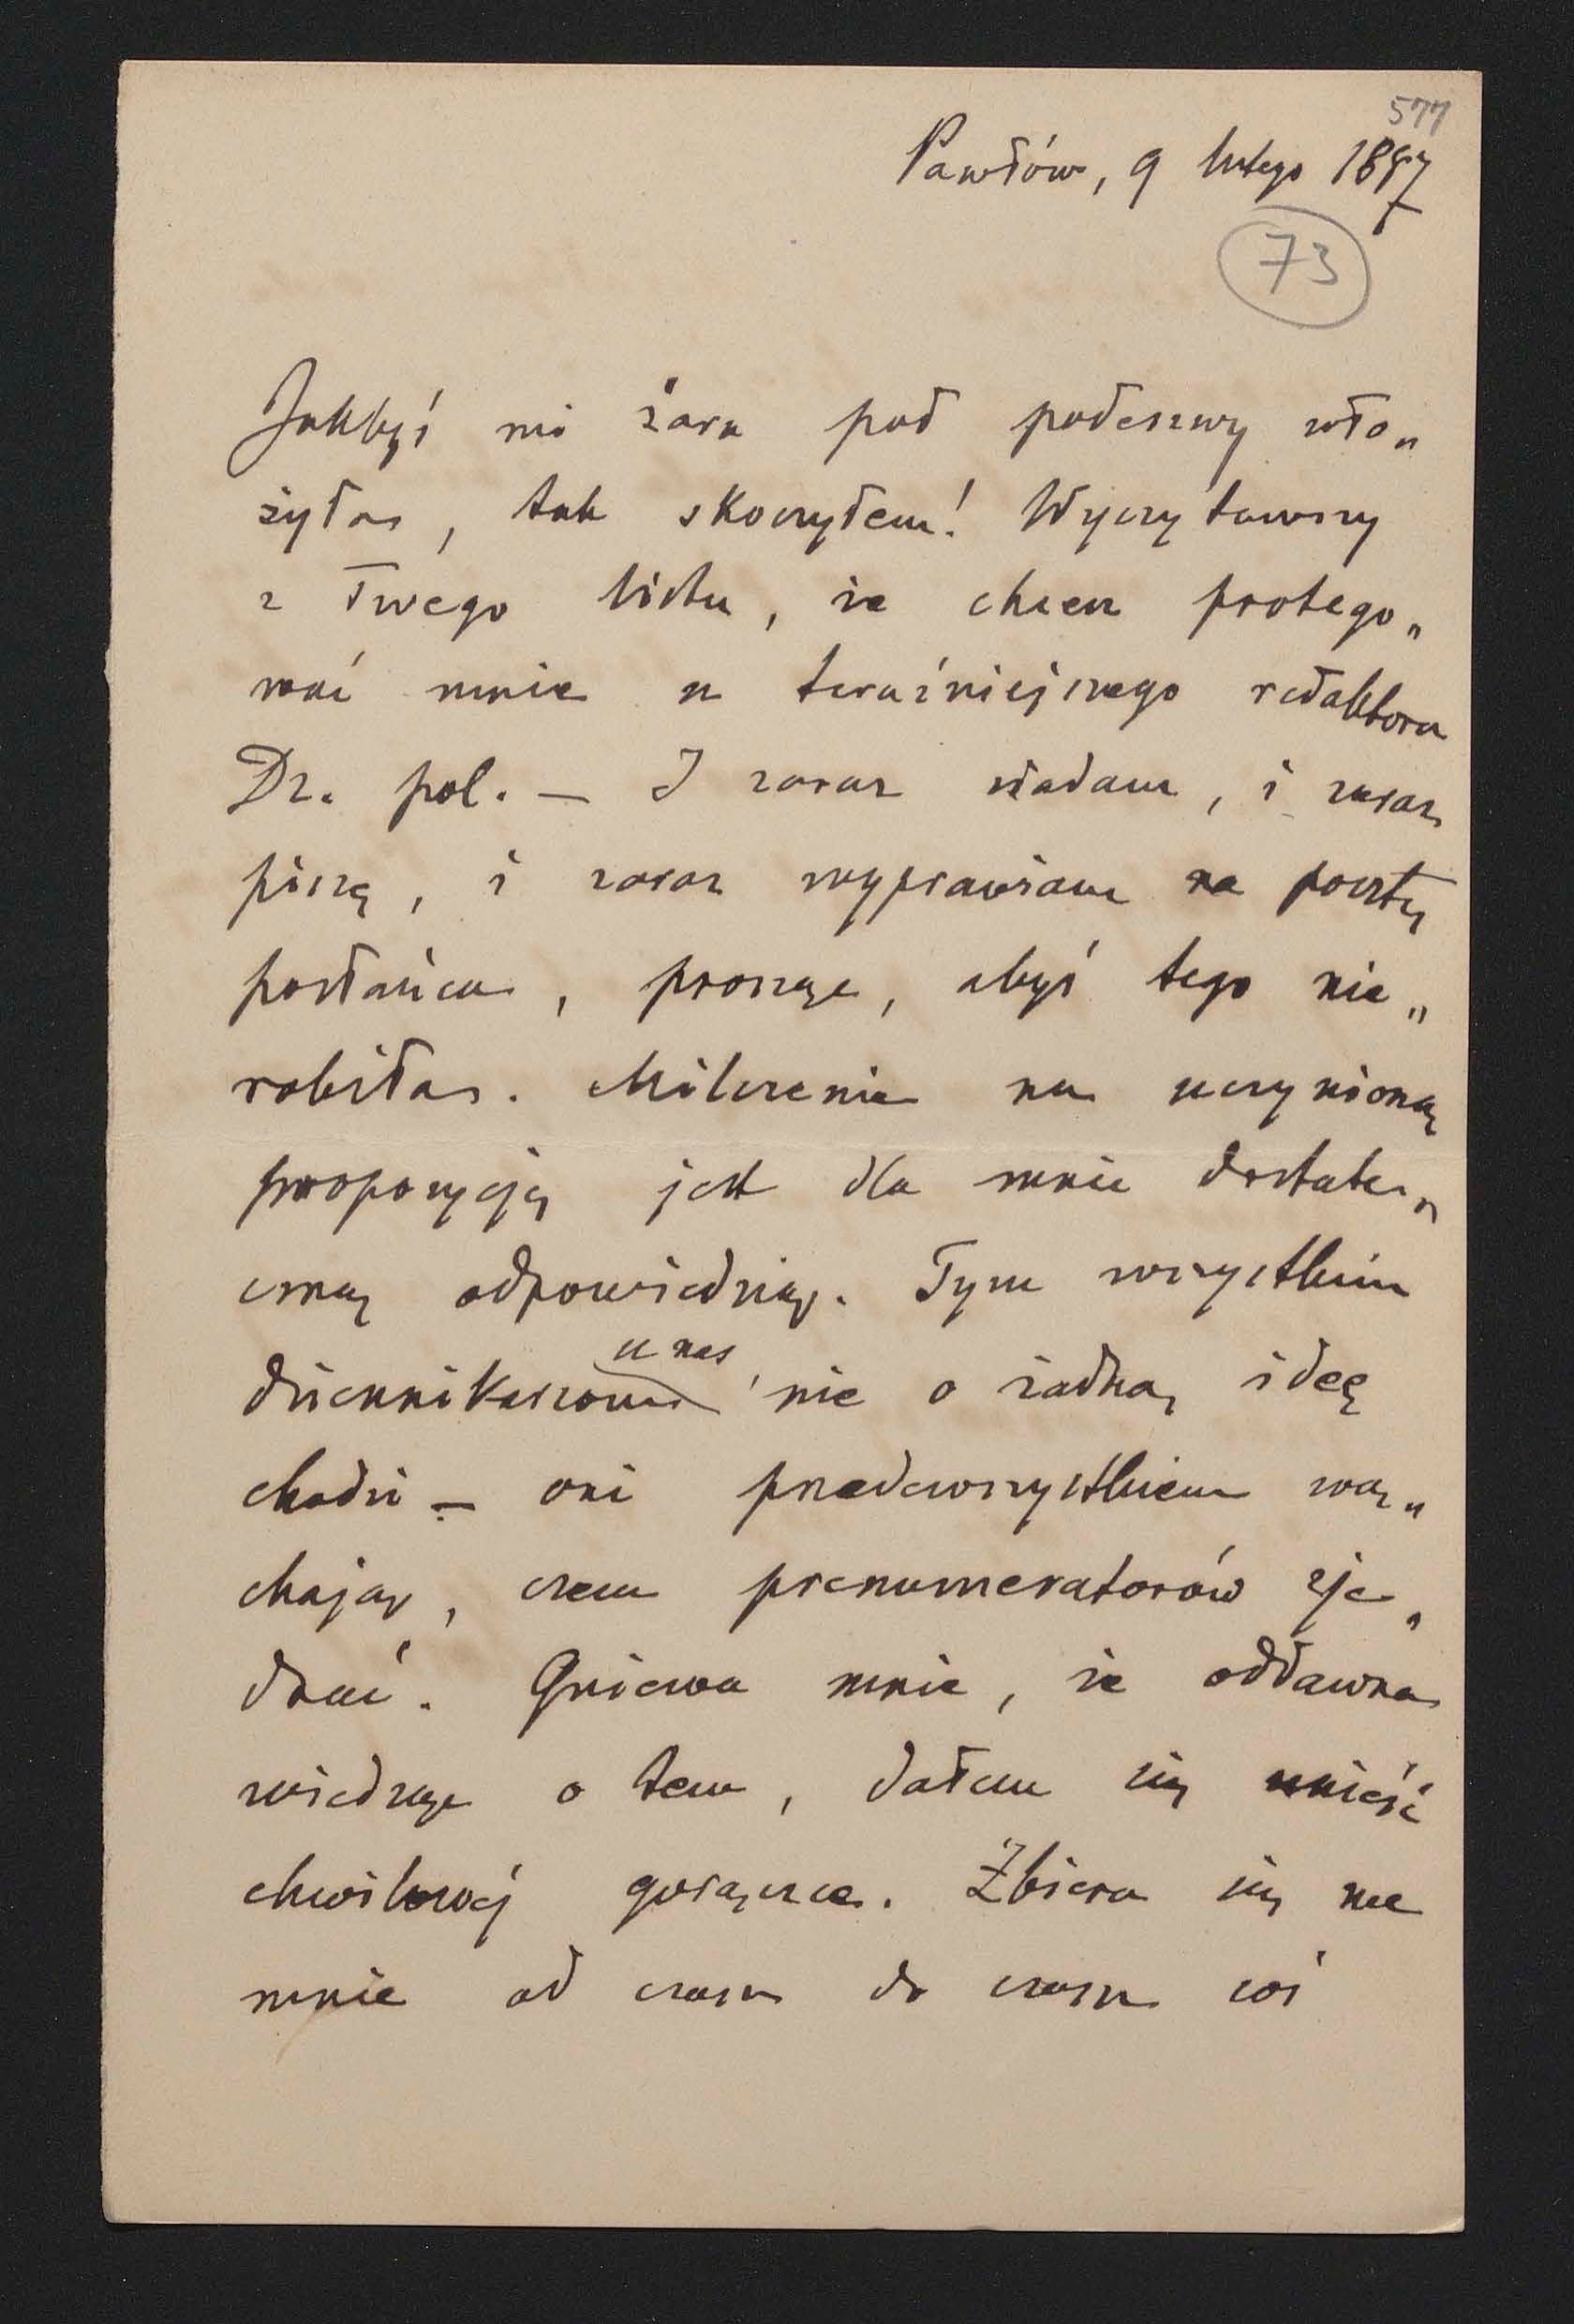 577
Pawłów, 9 lutego 1897
73
Jakbyś mi żaru pod podeszwy wło„
żyłas, tak skoczyłem! Wyczytawszy
z Twego listu, że chcesz protego„
wać mnie u teraźniejszego redaktora
Dz. pol. — I zaraz siadam, i zaraz
piszę, i zaraz wyprawiam na pocztę
posłańca, prosząc, abyś tego nie„
robiłas. Milczenie na uczynioną
propozycję jest dla mnie dostate„
czną odpowiedzią. Tym wszystkim
dziennikarzom u nas nie o żadną ideę
chodzi — oni przedewszystkiem wą„
chają, czem prenumeratorów zje„
dnać. Gniewa mnie, że oddawna
wiedząc o tem, dałem się unieść
chwilowej gorączce. Zbiera się we
mnie od czasu do czasu coś